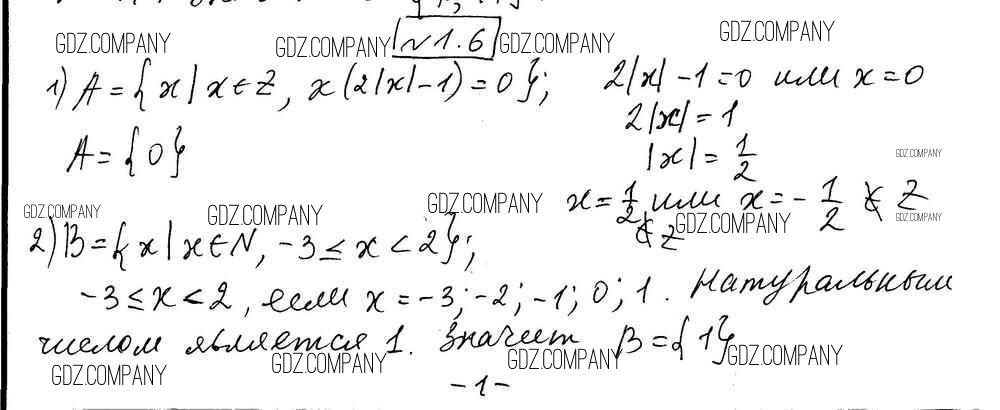 №1.6
1) A = { x | x ∈ Z, x(2|x|-1) = 0 }; 2|x| - 1 = 0 или x = 0
2|x| = 1
A = { 0 } |x| = 1/2
x = 1/2 ∉ Z или x = - 1/2 ∉ Z
2) B = { x | x ∈ N, -3 ≤ x < 2 };
-3 ≤ x < 2, если x = -3; -2; -1; 0; 1. Натуральным
числом является 1. Значит B = { 1 }
-1-
GDZ.COMPANY
GDZ.COMPANY
GDZ.COMPANY
GDZ.COMPANY
GDZ.COMPANY
GDZ.COMPANY
GDZ.COMPANY
GDZ.COMPANY
GDZ.COMPANY
GDZ.COMPANY
GDZ.COMPANY
GDZ.COMPANY
GDZ.COMPANY
GDZ.COMPANY